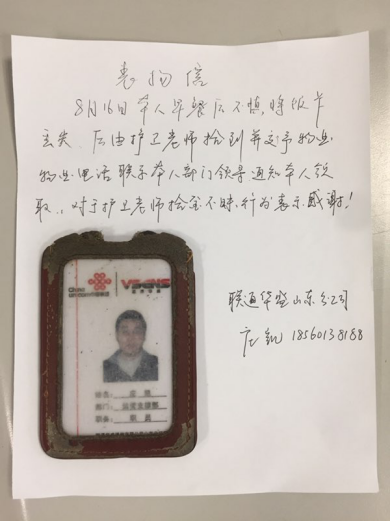 表扬信
8月16日本人早餐后不慎,将饭卡
丢失,后由护卫老师捡到并交予物业,
物业电话联系本人部门领导通知本人领
取,对于护卫老师拾金不昧行为表示感谢!
联通华盛山东分公司
18560138188
China
unicom中国联通
VSENS
姓名:
部门:
职务: